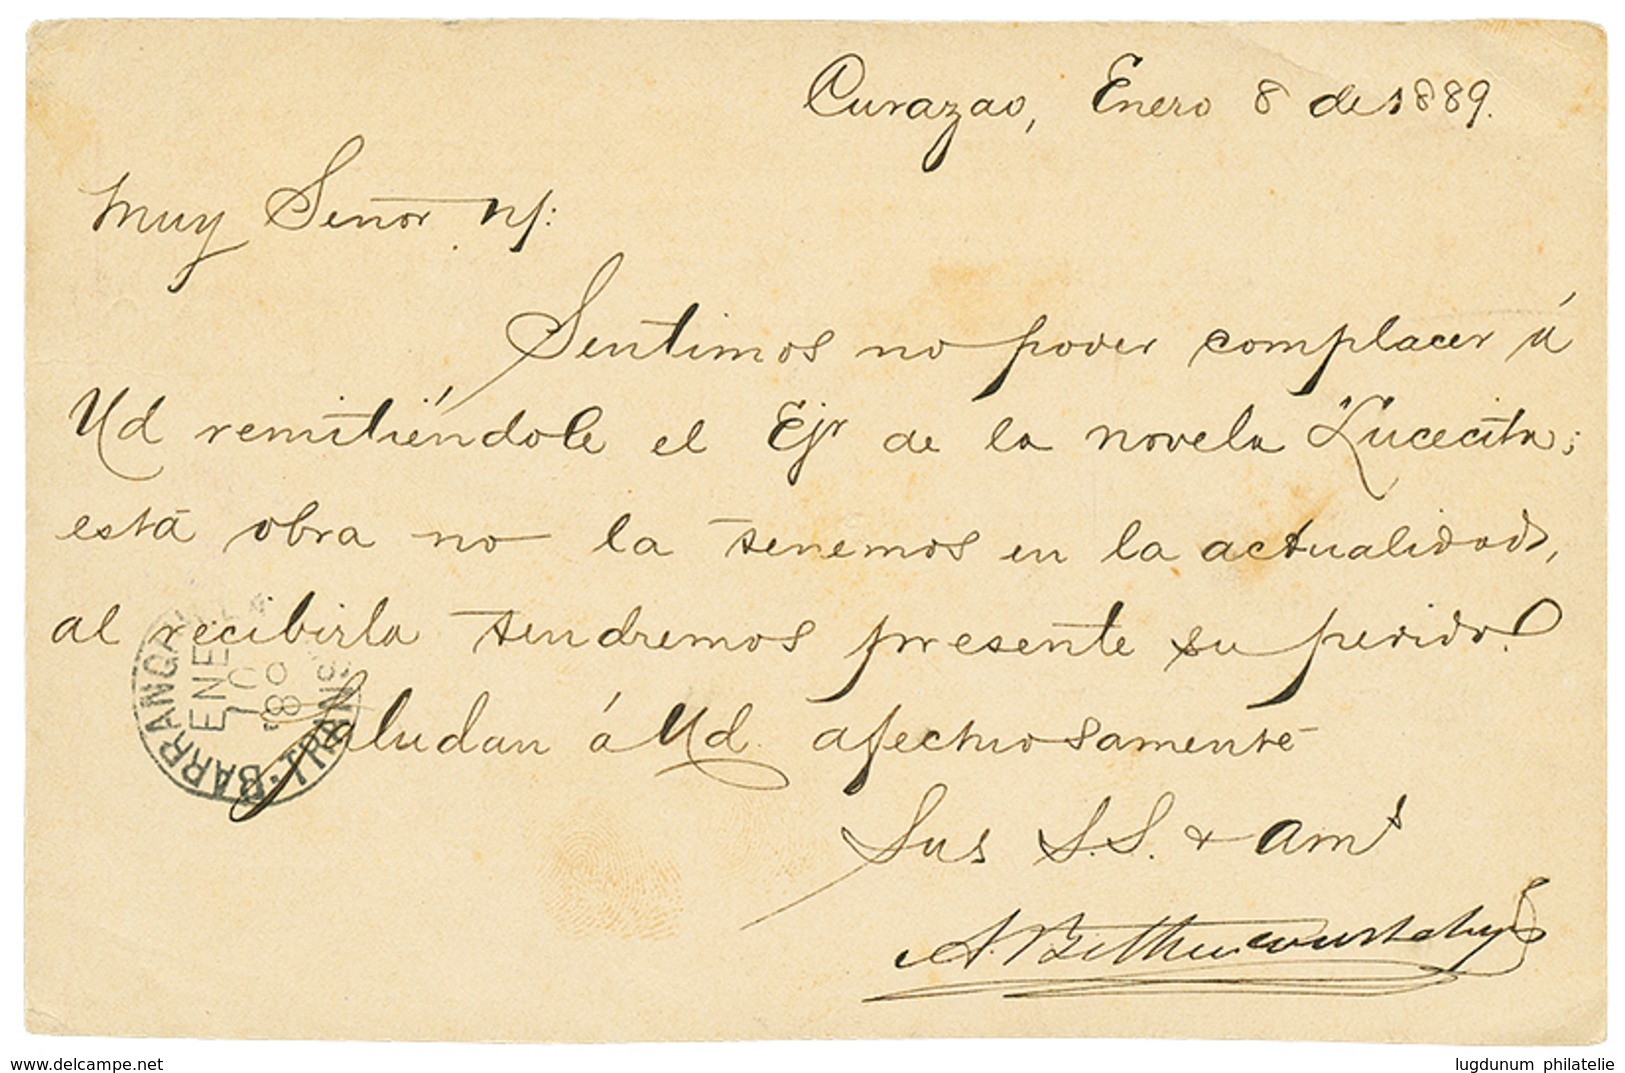 Curazao, Enero 8 de 1889.
Muy Señor n/:
Sentimos no poder complacer á
Ud remitiéndole el Ejr de la novela "Lucecita;
está obra no la tenemos en la actualidad,
al recibirla tendremos presente su pedido.
Saludan á Ud. afectuosamente
Sus S.S. & ams
A. Bethencourt e hijos
BARRANQ
ENE
10
89
TRANS
delcampe.net
lugdunum philatelie